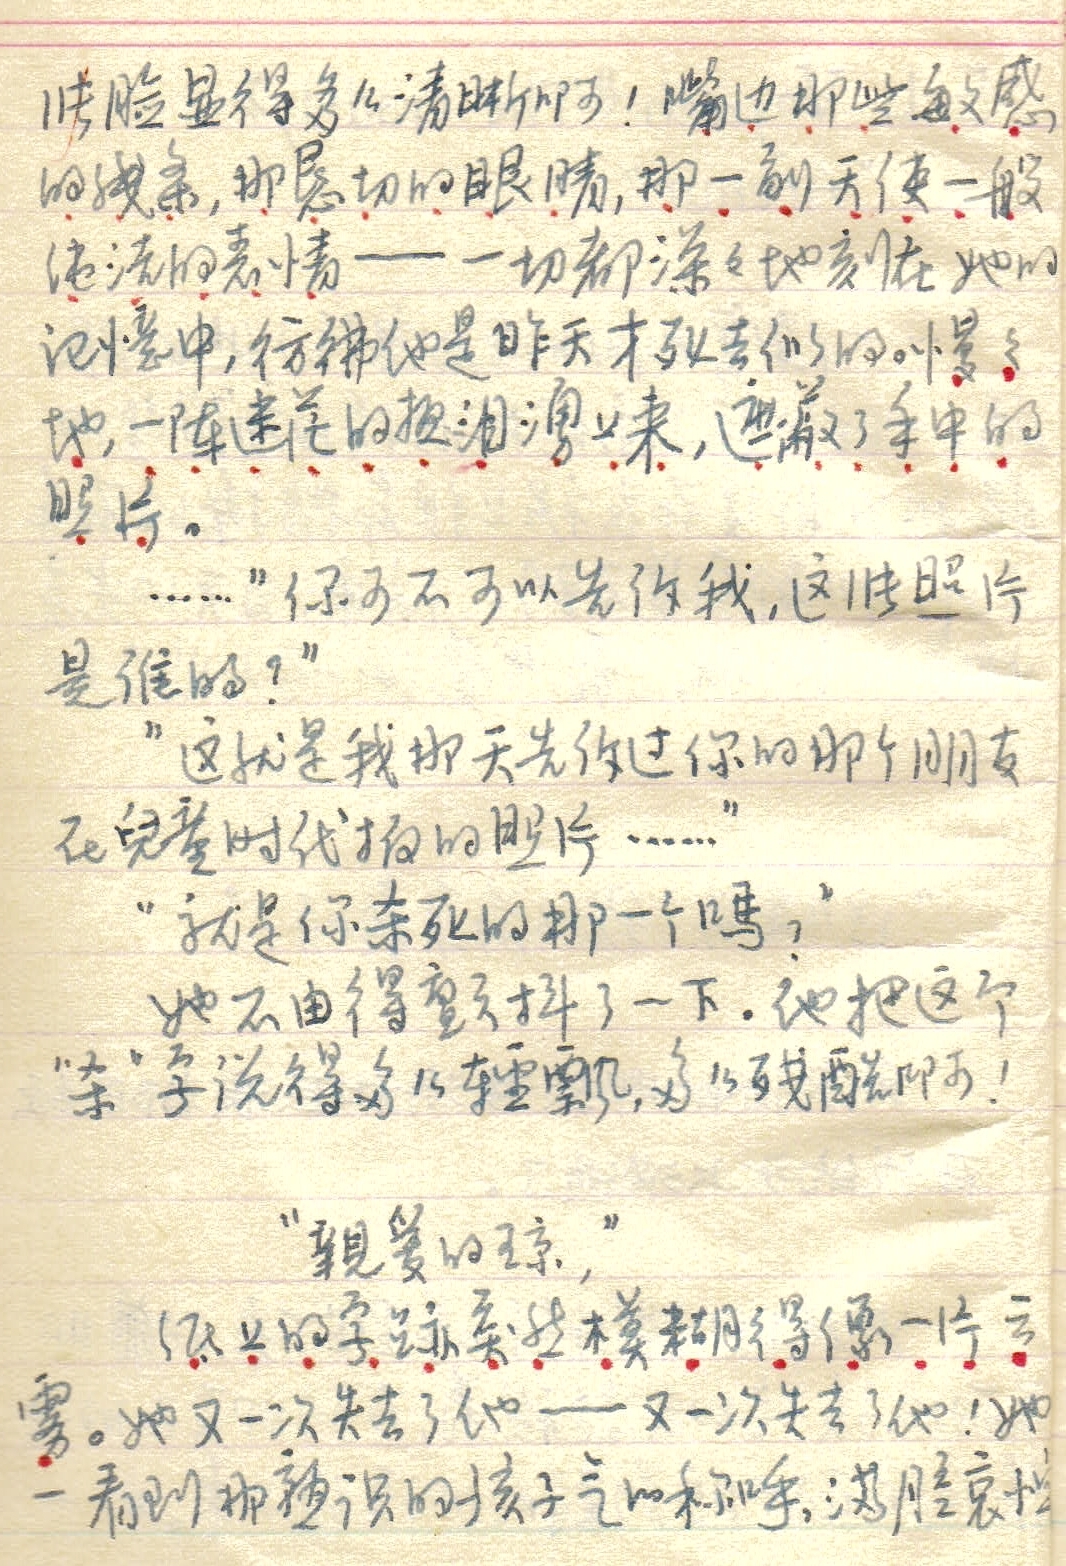 张脸显得多么清晰啊！嘴边那些敏感
的线条，那恳切的眼睛，那一副天使一般
的表情——一切都深々地刻在她的
记憶中，彷彿他是昨天才死去似的。慢々
地，一阵迷茫的热泪湧上来，遮蔽了手中的
照片。
……"你可不可以告诉我，这张照片
是谁的？"
"这就是我那天告诉过你的那个朋友
在兒童时代拍的照片……"
"就是你杀死的那一个嗎？"
她不由得颤抖了一下。他把这个
"杀"字说得多么轻飘，多么残酷啊！
"親爱的琼，"
纸上的字跡突然模糊得像一片云
雾。她又一次失去了他——又一次失去了他！她
一看到那熟识的孩子气的称呼，满腔哀